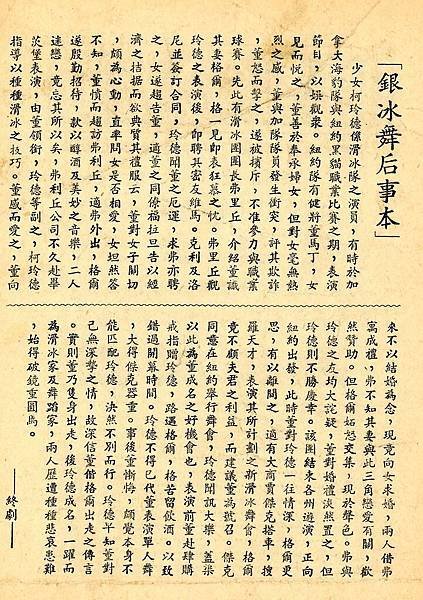 「銀冰舞后事本」
少女柯玲德係滑冰隊之演員,有時於加
拿大海豹隊與紐約黑貓職業比賽之期,表演
節目,以娛觀衆。紐約隊有健將董馬丁,女
見而悅之,董善於奉承婦女,但對女毫無熱
烈之感,董與加隊隊員發生衝突,評其欺詐
,董怒而擊之,遂被擯斥,不准參力與職業
球賽。先此有滑冰團團長弗里丘,介紹董識
其妻格爾,格一見即表狂慕之忱。弗里丘觀
玲德之表演後,即聘其密友維馬。克利及洛
尼並簽訂合同,玲德聞董之厄運,求弗亦聘
之,女遂趨告董,適董之同僚福拉旦告以經
濟之拮据而欲典質其禮服云,董對女子關切
,頗為心動,直率問女是否相愛,女坦然答
不知,董憤而趨訪弗利丘,適弗外出,格爾
遂殷勤招待,款以醇酒及美妙之音樂,二人
迷戀,竟忘其所以矣,弗利丘公司不久赴畢
茨堡表演,由董領銜,玲德等副之,柯玲德
指導以種種滑冰之技巧。董感而愛之,董向
來不以結婚為念,現竟向女求婚,兩人借弗
寓成禮,弗不知其妻與此三角戀愛有關,歡
然贊助。但格爾妬怒交集,現於聲色。弗與
玲德之友均大詫疑,董對婚禮淡然置之,但
玲德則不勝慶幸。該團結束各州遊演,正向
紐約出發,此時董對玲德一往情深,格爾更
思,有以離間之,適有大商賈傑克搭車,搜
羅天才,表演其所計劃之新滑冰舞會,格爾
竟不顧夫君之利益,而建議董為號召。傑克
同意在紐約舉行舞會,玲德聞訊大樂,蓋柒
以此為董成名之好機會也,表演前董赴肆購
戒指贈玲德,路遇格爾,格苦留飲酒。以致
錯過開幕時間。玲德不得已代董表演單人舞
,大得傑克器重。事後董慚悔,頗覺本身不
能匹配玲德,決然不別而行。玲德早知董對
己無深摯之情,故深信董偕格爾出走之傳言
。實則董乃隻身出走,後玲德成名,一躍而
為滑冰家及舞蹈家,兩人歷遭種種悲哀患難
,始得破鏡重圓焉。
——終劇——